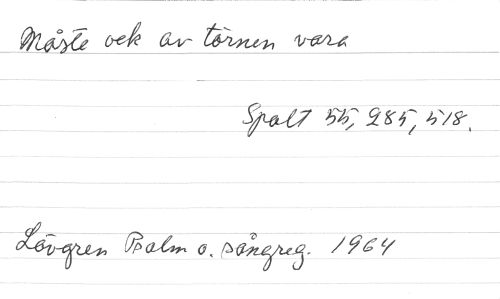 Måste ock av törnen vara
Spalt 55, 285, 518.
Lövgren Psalm o. sångreg. 1964